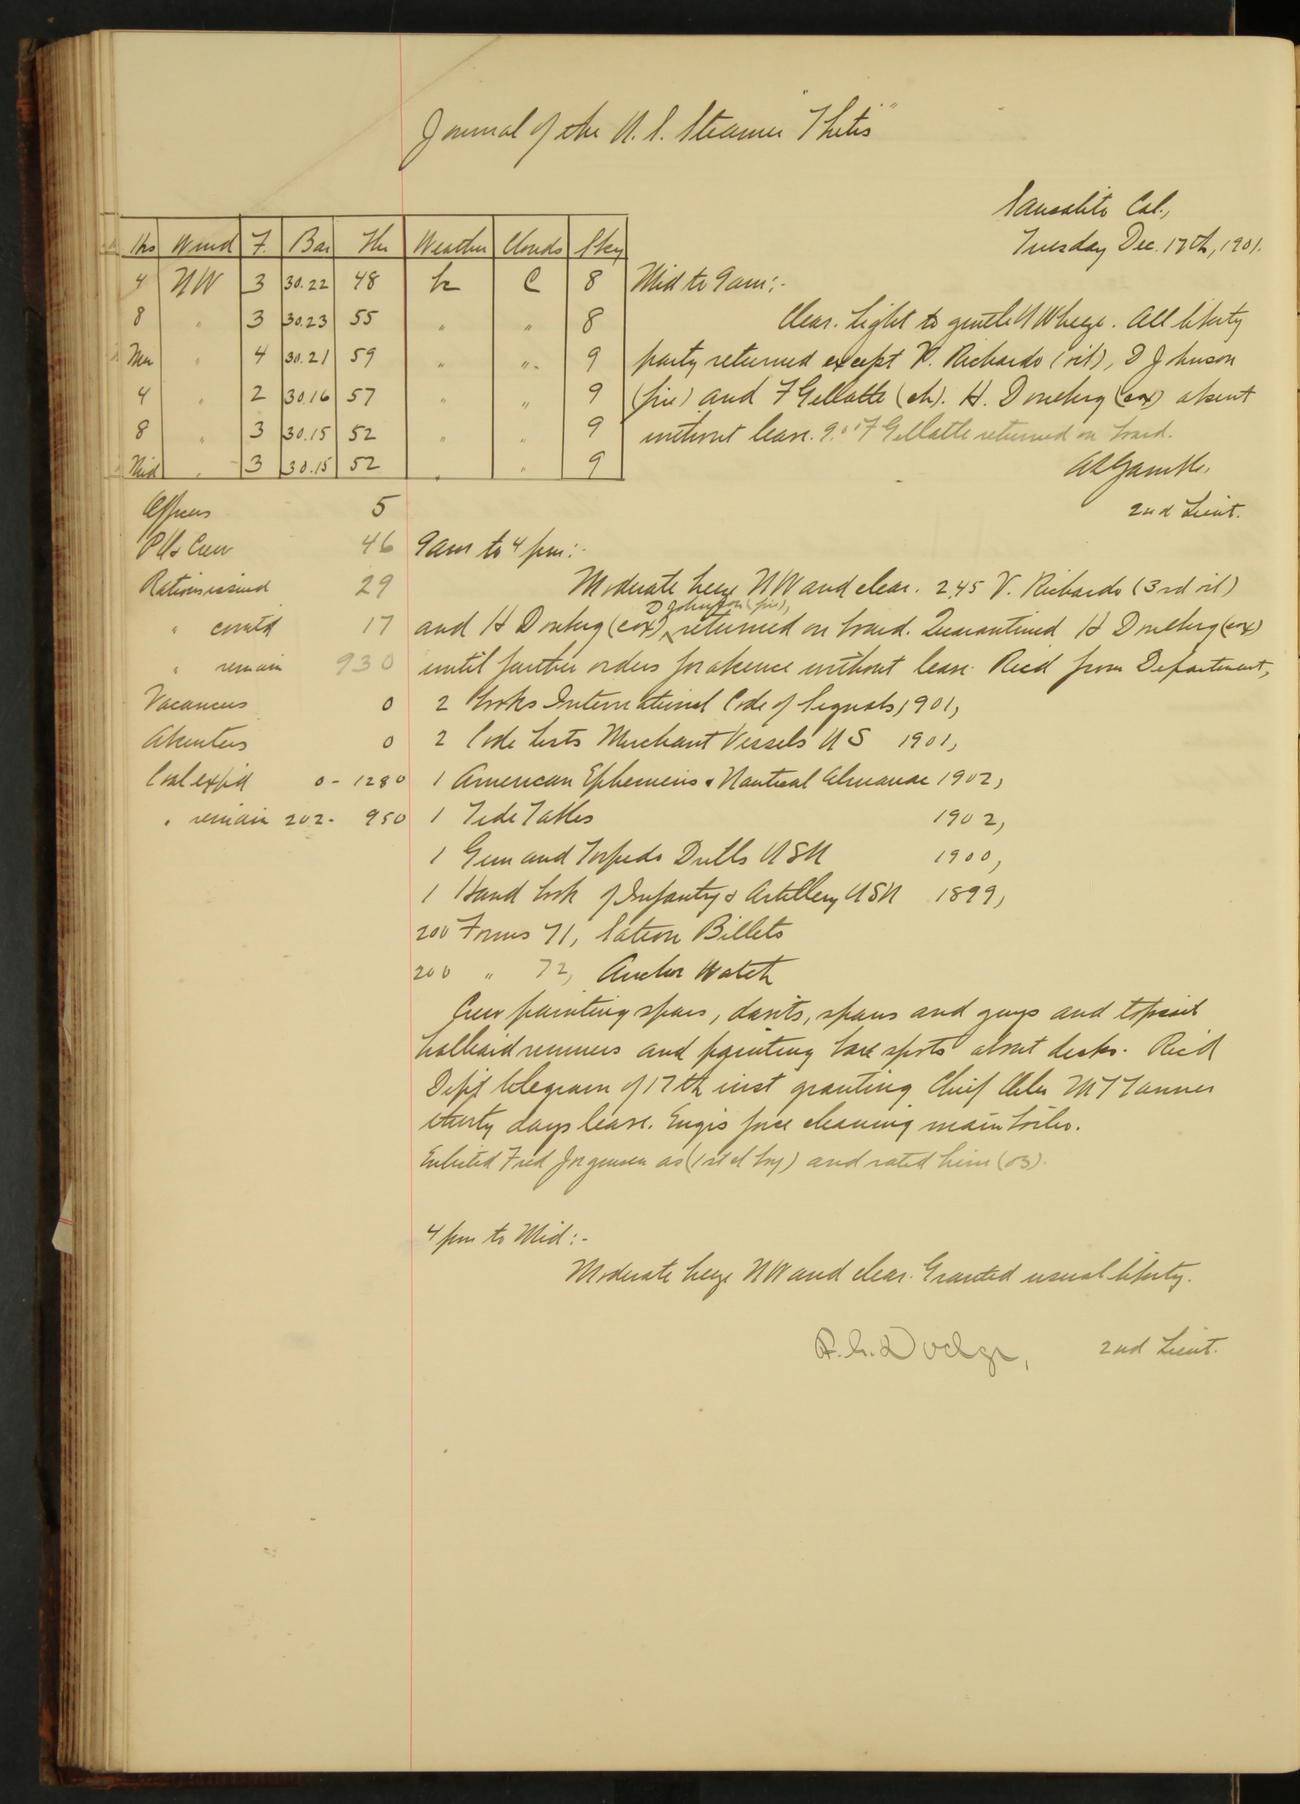 Journal of the U. S. Steamer "Thetis"
Sausalito Cal.,
Tuesday Dec. 17th, 1901.
Hrs Wind F. Bar Thr Weather Clouds Sky
4 NW 3 30.22 48 C 8
8 " 3 30.23 55 " " 8
Mer " 4 30.21 59 " " 9
4 " 2 30.16 57 " " 9
8 " 3 30.15 52 " " 9
Mid " 3 30.15 52 " " 9
Mid to 9am:-
Clear. Light to gentle NW breeze. All liberty
party returned except V. Richards (oil), D Johnson
(fire) and F Gellatte (ch). H. Doneberg (cox) absent
without leave. 9.00 F Gellatte returned on board.
2nd Lieut.
Officers 5
P.O. & Crew 46
Rations issued 29
" comtd 17
" remain 930
Vacancies 0
Absentees 0
Coal exp'd 0 - 1280
" remain 202 - 950
9am to 4 pm:-
Moderate breeze NW and clear. 2.45 V. Richards (3rd oil)
D Johnson (fire),
and H Doneberg (cox) returned on board. Quarantined H Doneberg (cox)
until further orders for absence without leave. Rec'd from Department,
2 Books International Code of Signals, 1901,
2 Code Lists Merchant Vessels U S 1901,
1 American Ephemeris & Nautical Almanac 1902,
1 Tide Tables 1902,
1 Gun and Torpedo Drills USN 1900,
1 Hand book of Infantry & Artillery USN 1899,
200 Forms 71, Station Billets
200 " 72, Anchor Watch
Crew painting spars, davits, spans and guys and topsail
halliard runners and painting bare spots about decks. Rec'd
Dep't telegram of 17th inst granting Chief M T Tanner
thirty days leave. Eng's force cleaning main boiler.
Enlisted Fred Jorgensen as (1st cl boy) and rated him (os).
4 pm to Mid:-
Moderate breeze NW and clear. Granted usual liberty.
Dodge, 2nd Lieut.